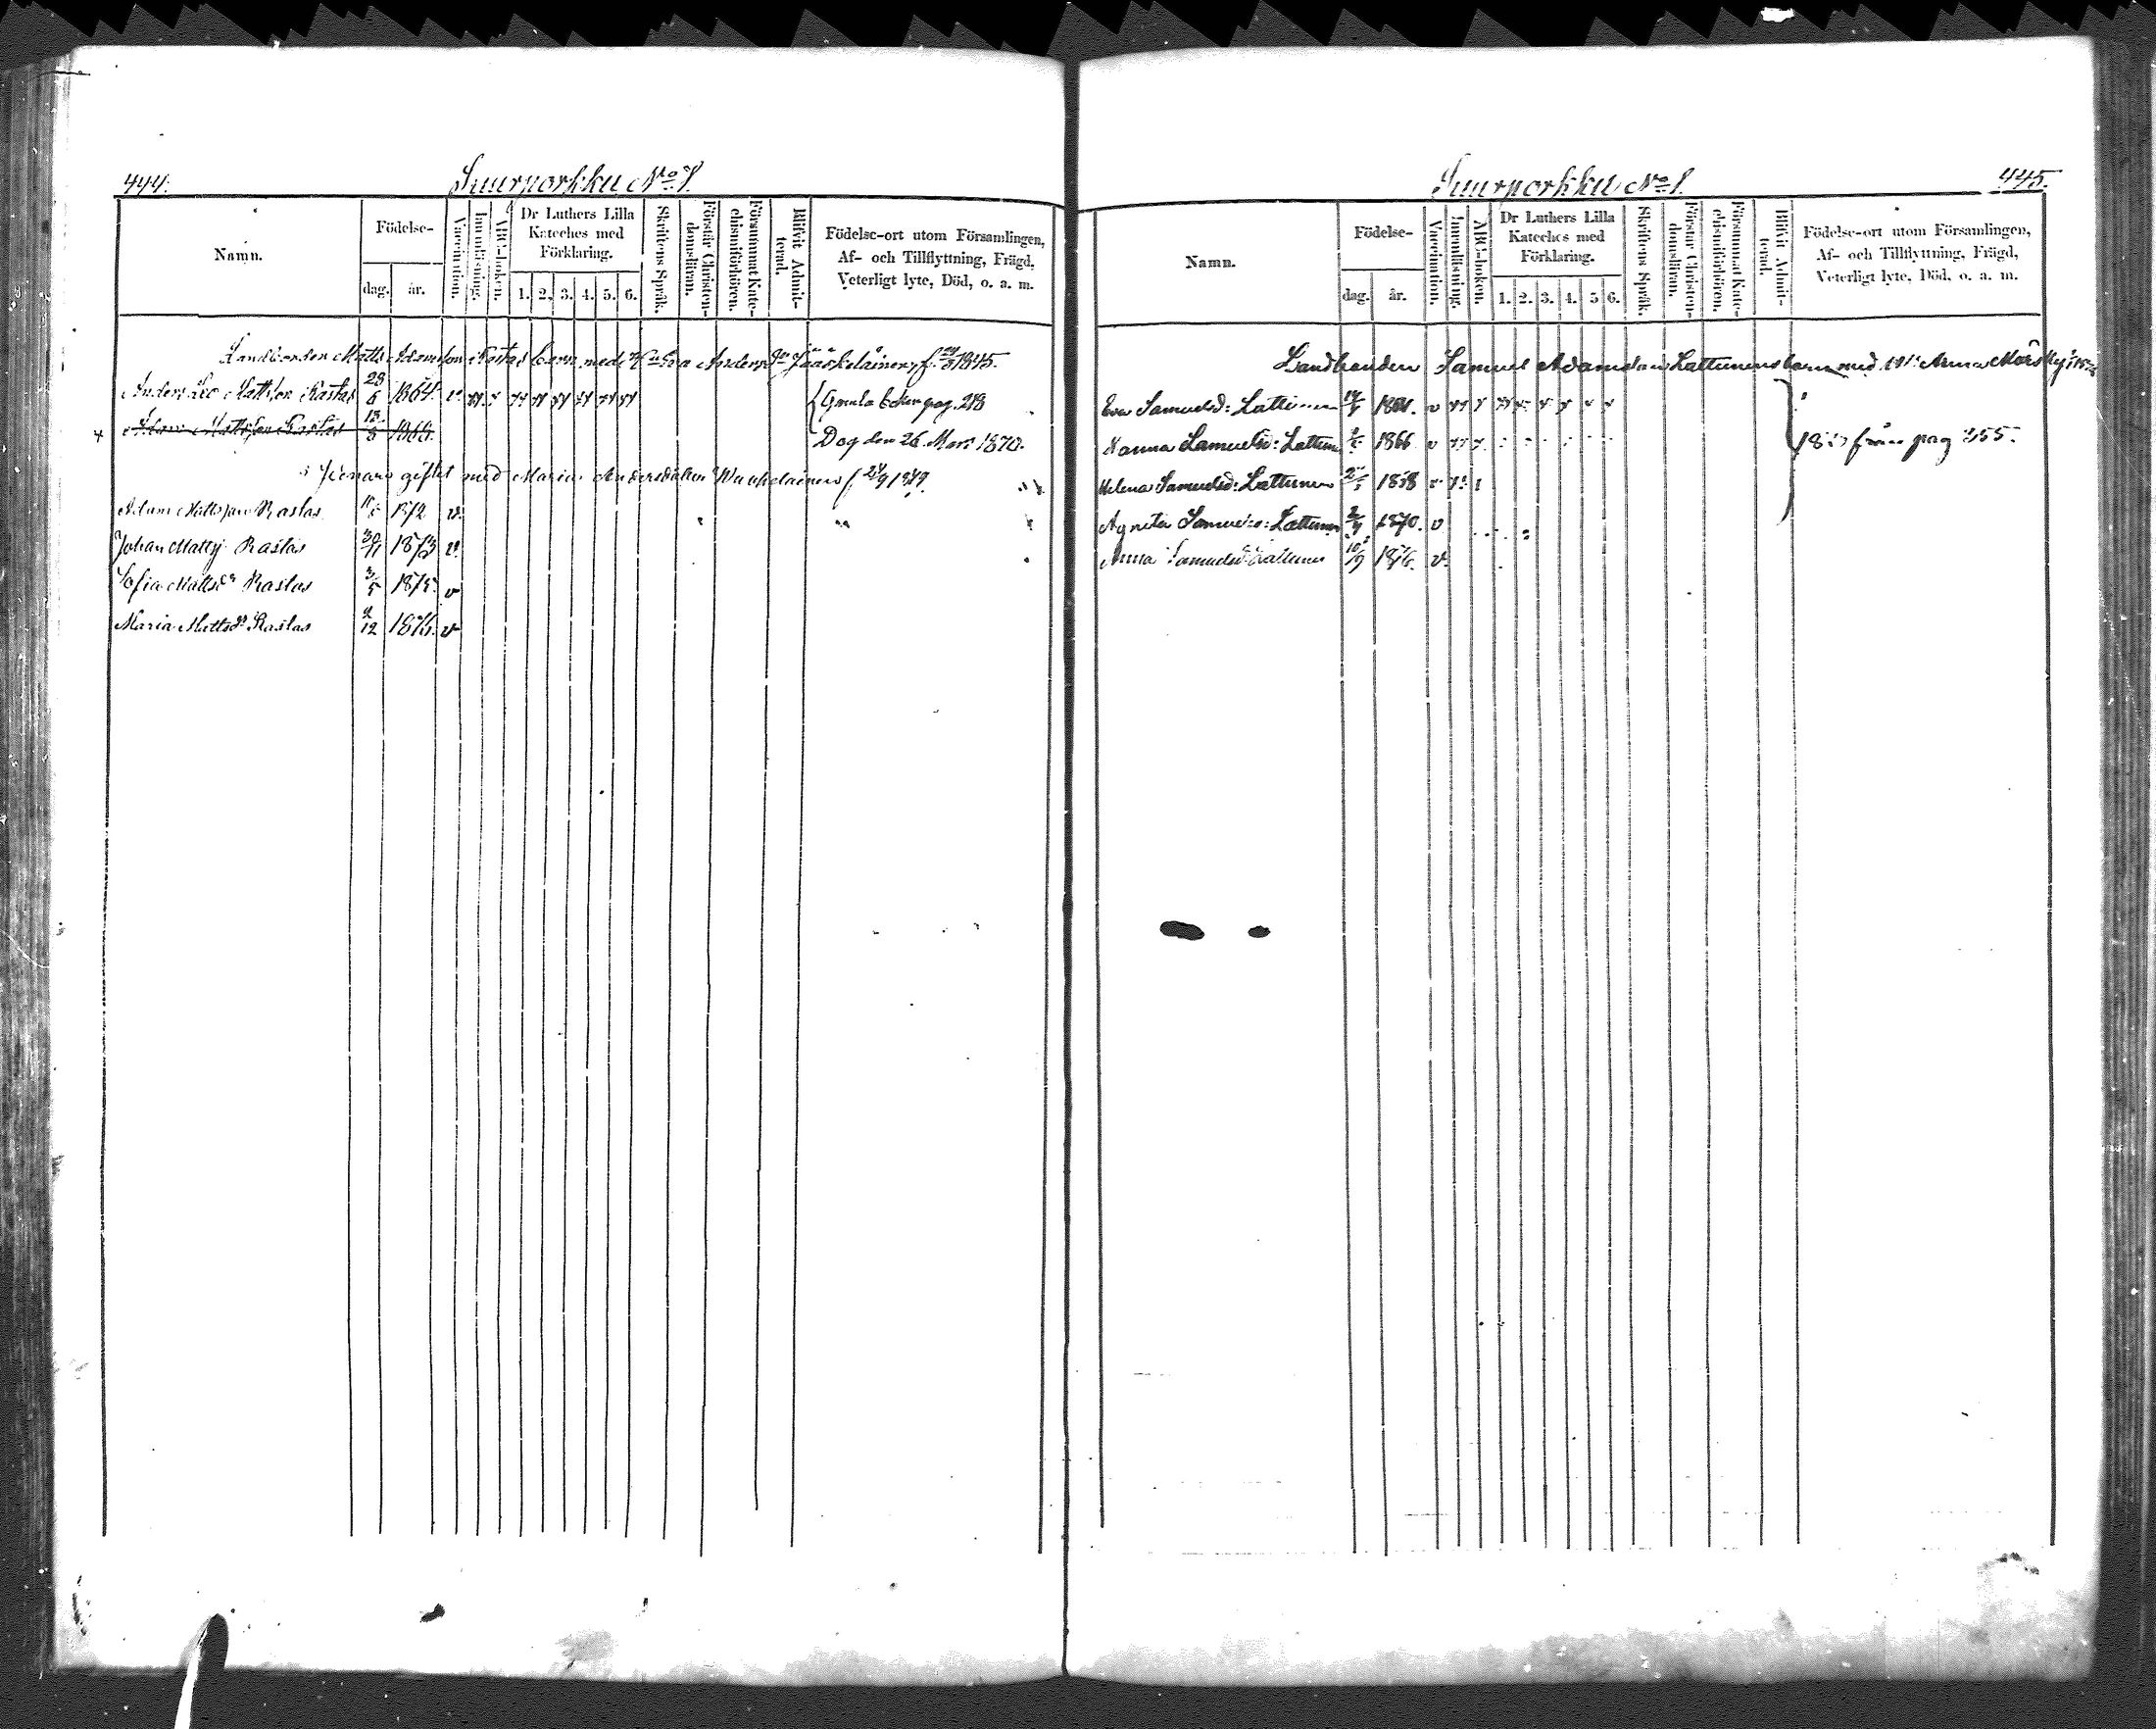 444.
Suurporkku No 1.
Namn.
Födelse-
dag.
år.
Vaccination.
Innanläsning.
ABC-boken.
Dr Luthers Lilla
Kateches med
Förklaring.
1. 2. 3. 4. 5. 6.
Skriftens Språk.
Förstår Christen-
domsläran.
Försummat Kate-
chismiförhören.
Blifvit Admit-
terad.
Födelse-ort utom Församlingen,
Af- och Tillflyttning, Frägd,
Veterligt lyte, Död, o. a. m.
Landbonden Matts Adamsson Rastas barn med Eva Andersd:r Jääskeläinen f. 1845.
Anders Leo Mattsson Rastas 28/6 1864. v
Gamla boken pag. 218
Adam Mattsson Rastas 13/8 1868.
Dog den 26 Mars 1870.
Senare giftet med Maria Andersdotter f 24/9 1849.
Adam Mattsson Rastas 1872 v.
Johan Mattsj. Rastas 30/11 1873 v.
Sofia Mattsd:r Rastas 3/5 1875. v
Maria Mattsd:r Rastas 9/12 1876. v
445.
Suurporkku No 1.
Namn.
Födelse-
dag.
år.
Vaccination.
Innanläsning.
ABC-boken.
Dr Luthers Lilla
Kateches med
Förklaring.
1. 2. 3. 4. 5 6.
Skriftens Språk.
Förstår Christen-
domsläran.
Försummat Kate-
chismiförhören.
Blifvit Admit-
terad.
Födelse-ort utom Församlingen,
Af- och Tillflyttning, Frägd,
Veterligt lyte, Död, o. a. m.
Landbonden Samuel Adamsson Lattunens barn med Anna
Eva Samuelsd: Lattunen v
Nanna Samuelsd: 1866 v
från pag 355.
Helena Samuelsd: Lattunen
Agneta Lattunen 2/4 1870. v
Anna Samuelsd: Lattunen 10/9 1876. v.